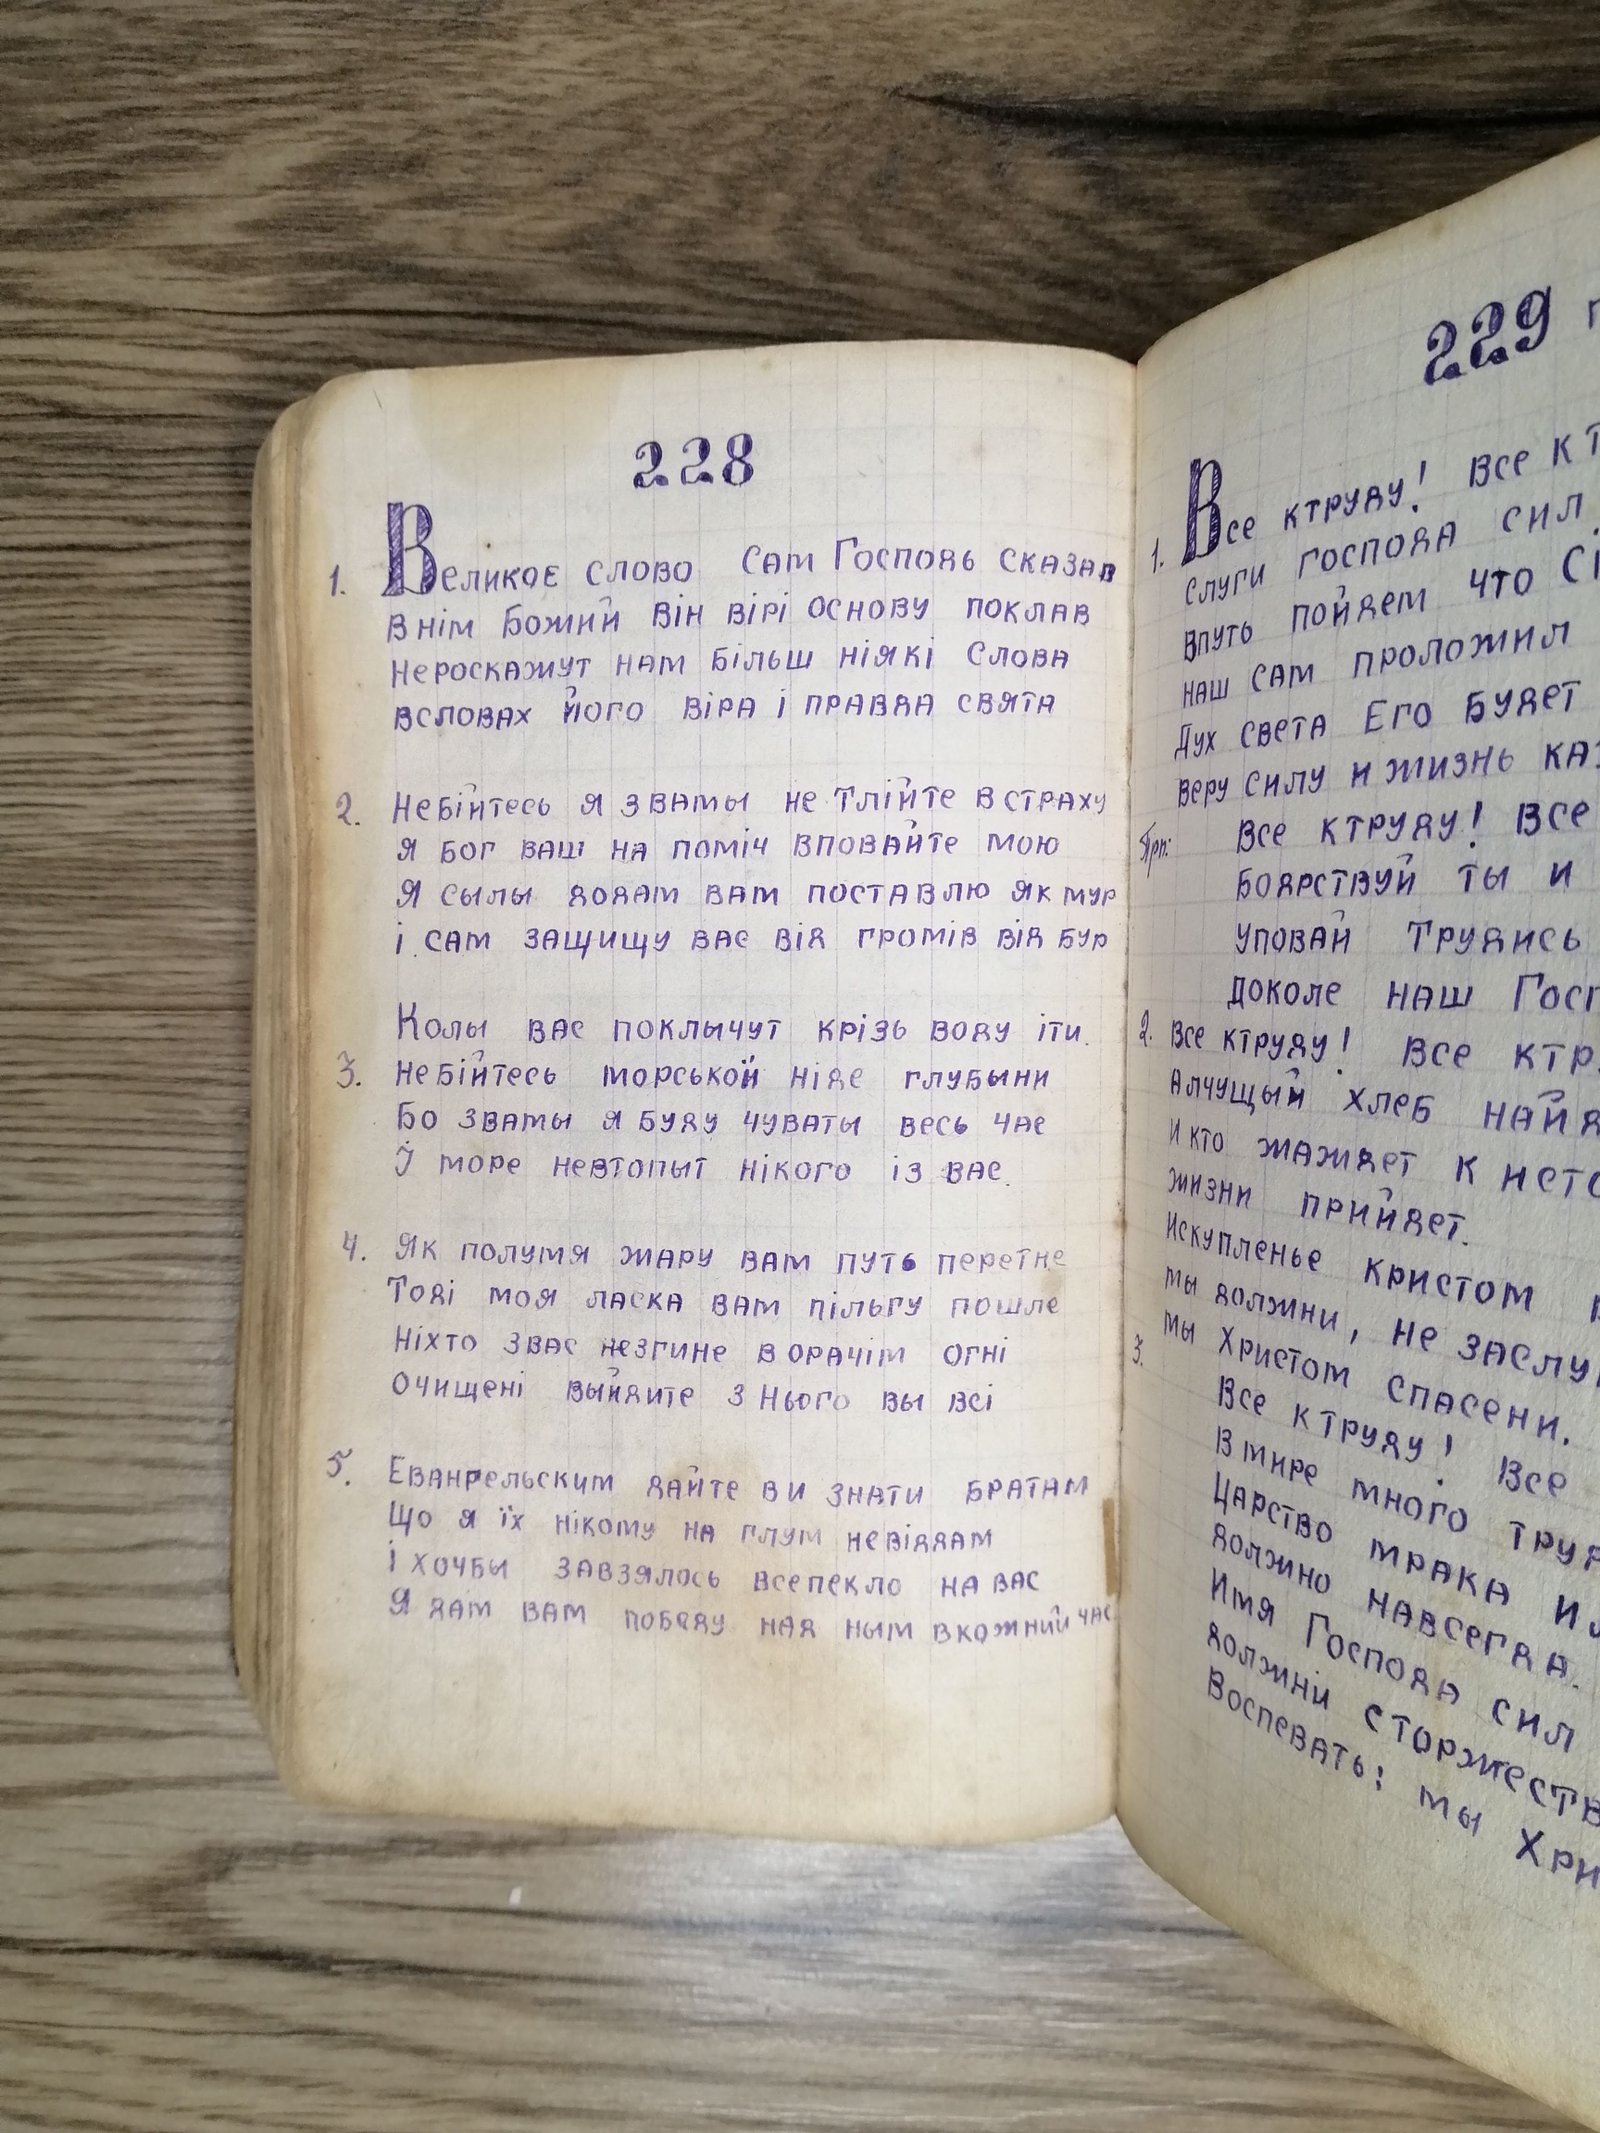 228
1. Великоє слово сам Господь сказав
В нім Божий він вірі основу поклав
Нероскажут нам більш ніякі слова
всловах його віра і правда свята
2. Небійтесь я звамы не тлійте в страху
Я бог ваш на поміч вповайте мою
Я сылы додам вам поставлю як мур
і сам защищу вас від громів від бур
Колы вас поклычут крізь воду іти.
3. Небійтесь морськой ніде глубыни
Бо звамы я буду чуваты весь час
І море невтопыт нікого із вас.
4. Як полумя жару вам путь перетне
Тоді моя ласка вам пільгу пошле
Ніхто звас незгине в орачім огні
очищені выйдите з нього вы всі
5. Евангельским дайте ви знати братам
Що я їх нікому на глум невіддам
і хочбы завзялось всепекло на вас
Я дам вам победу над ным вкожний час
229
1. Все ктруду! Все кт
слуги господа сил
впуть пойдем что
наш сам проложил
Дух света Его будет
веру силу и жизнь
Прп: Все ктруду! Все
Бодрствуй ты и
уповай трудись
Доколе наш Госп
2. Все ктруду! Все ктр
Алчущый хлеб найд
И кто жаждет к исто
жизни прийдет.
Искупленье кристом
мы должни, не заслу
мы Христом спасени.
3. Все ктруду! Все
В мире много труд
Царство мрака и
должно навсегда.
Имя Господа сил
должні сторжеств
Воспевать: мы Хри